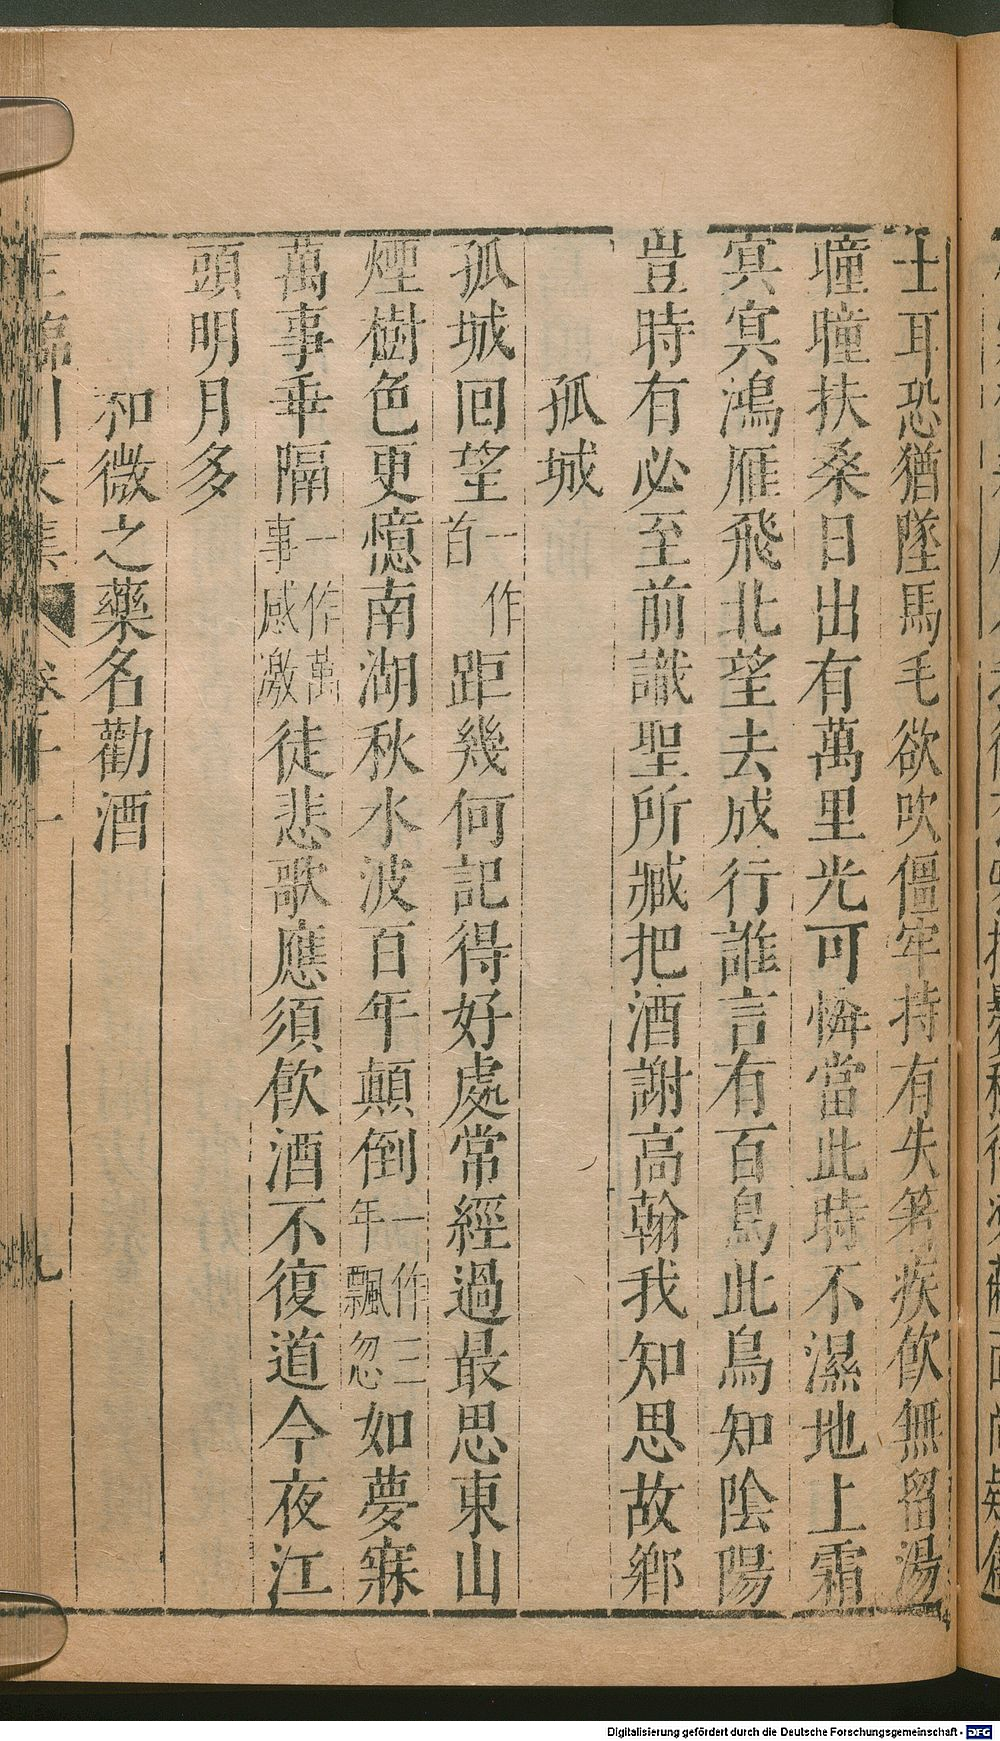 士耳恐猶墜馬毛欲吹僵牢持有失箸疾飲無留湯
曈曈扶桑日出有萬里光可憐當此時不濕地上霜
冥冥鴻雁飛北望去成行誰言有百鳥此鳥知陰陽
豈時有必至前識聖所臧把酒謝高翰我知思故鄉
孤城
孤城回望一作首距幾何記得好處常經過最思東山
煙樹色更憶南湖秋水波百年顛倒一作三年飄忽如夢寐
萬事乖隔一作萬事感激徒悲歌應須飲酒不復道今夜江
頭明月多
和微之藥名勸酒
王臨川文集 卷十一 九
Digitalisierung gefördert durch die Deutsche Forschungsgemeinschaft - DFG